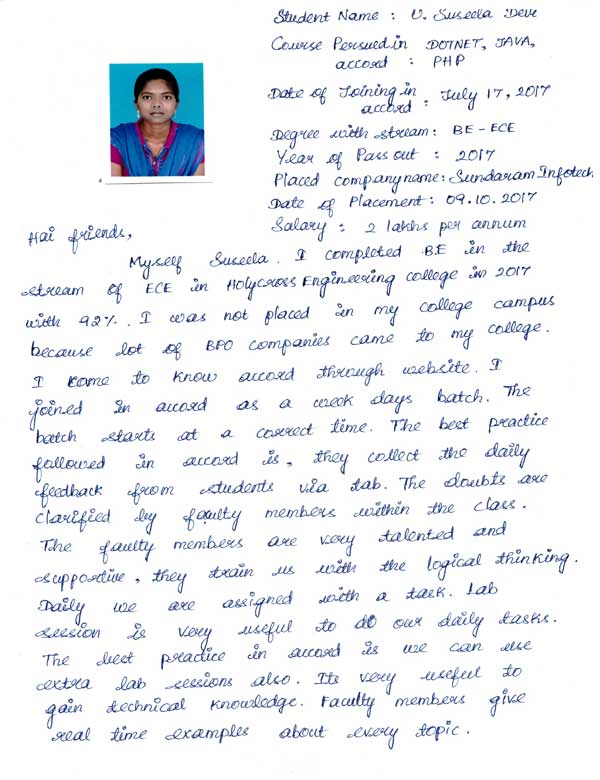 Student Name : V. Suseela Devi
Course Persued in DOTNET, JAVA,
accord : PHP
Date of Joining in
accord : July 17, 2017
Degree with stream : BE - ECE
Year of Pass out : 2017
Placed company name : Sundaram Infotech
Date of Placement : 09.10.2017
Salary : 2 lakhs per annum
Hai friends,
Myself Suseela. I completed B.E in the
stream of ECE in Holycross Engineering college in 2017
with 92%. I was not placed in my college campus
because lot of BPO companies came to my college.
I came to know accord through website. I
joined in accord as a week days batch. The
batch starts at a correct time. The best practice
followed in accord is, they collect the daily
feedback from students via tab. The doubts are
clarified by faulty members within the class.
The faulty members are very talented and
supportive, they train us with the logical thinking.
Daily we are assigned with a task. Lab
session is very useful to do our daily tasks.
The best practice in accord is we can use
extra lab sessions also. Its very useful to
gain technical knowledge. Faculty members give
real time examples about every topic.